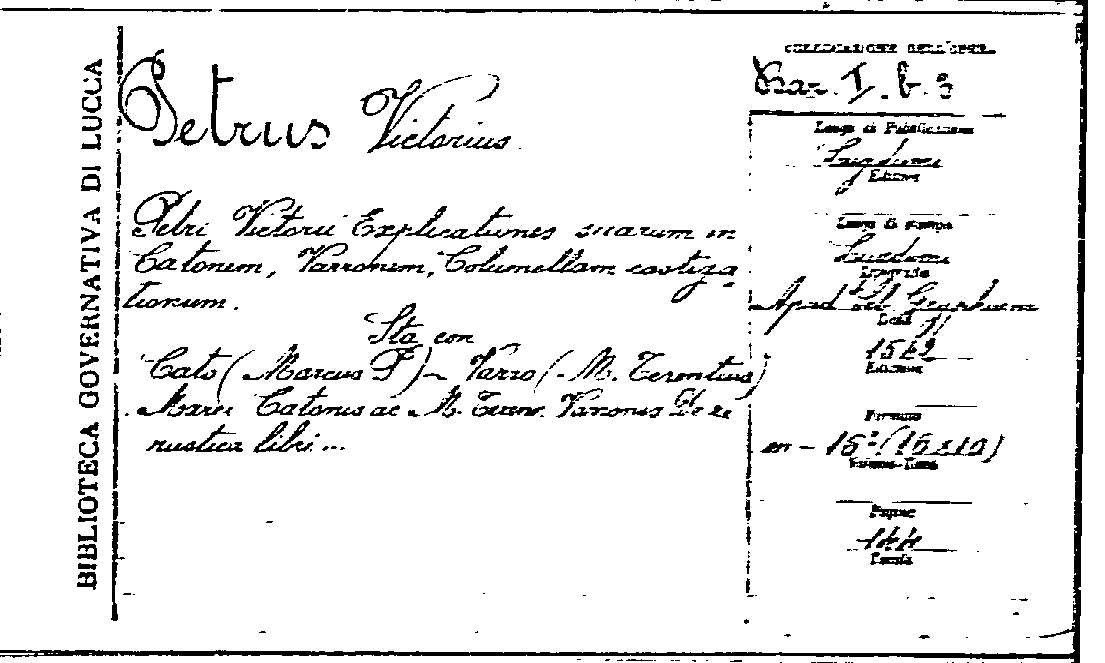 BIBLIOTECA GOVERNATIVA DI LUCCA
Petrus Victorius
Petri Victorii Explicationes suarum in
Catonem, Varronem, Columellam castiga-
tionum.
Sta con
Cato (Marcus P) - Varro (M. Terentius)
Marci Catonis ac M. Teren. Varronis De re
rustica libri...
COLLOCAZIONE DELL'OPERA
I. b. 3
Luogo di Pubblicazione
Lugduni
Editore
Luogo di stampa
Lugduni
Tipografo
Apud
Data
1542
Edizione
Formato
in - 16° (16x10)
Volume-Tomo
Pagine
144